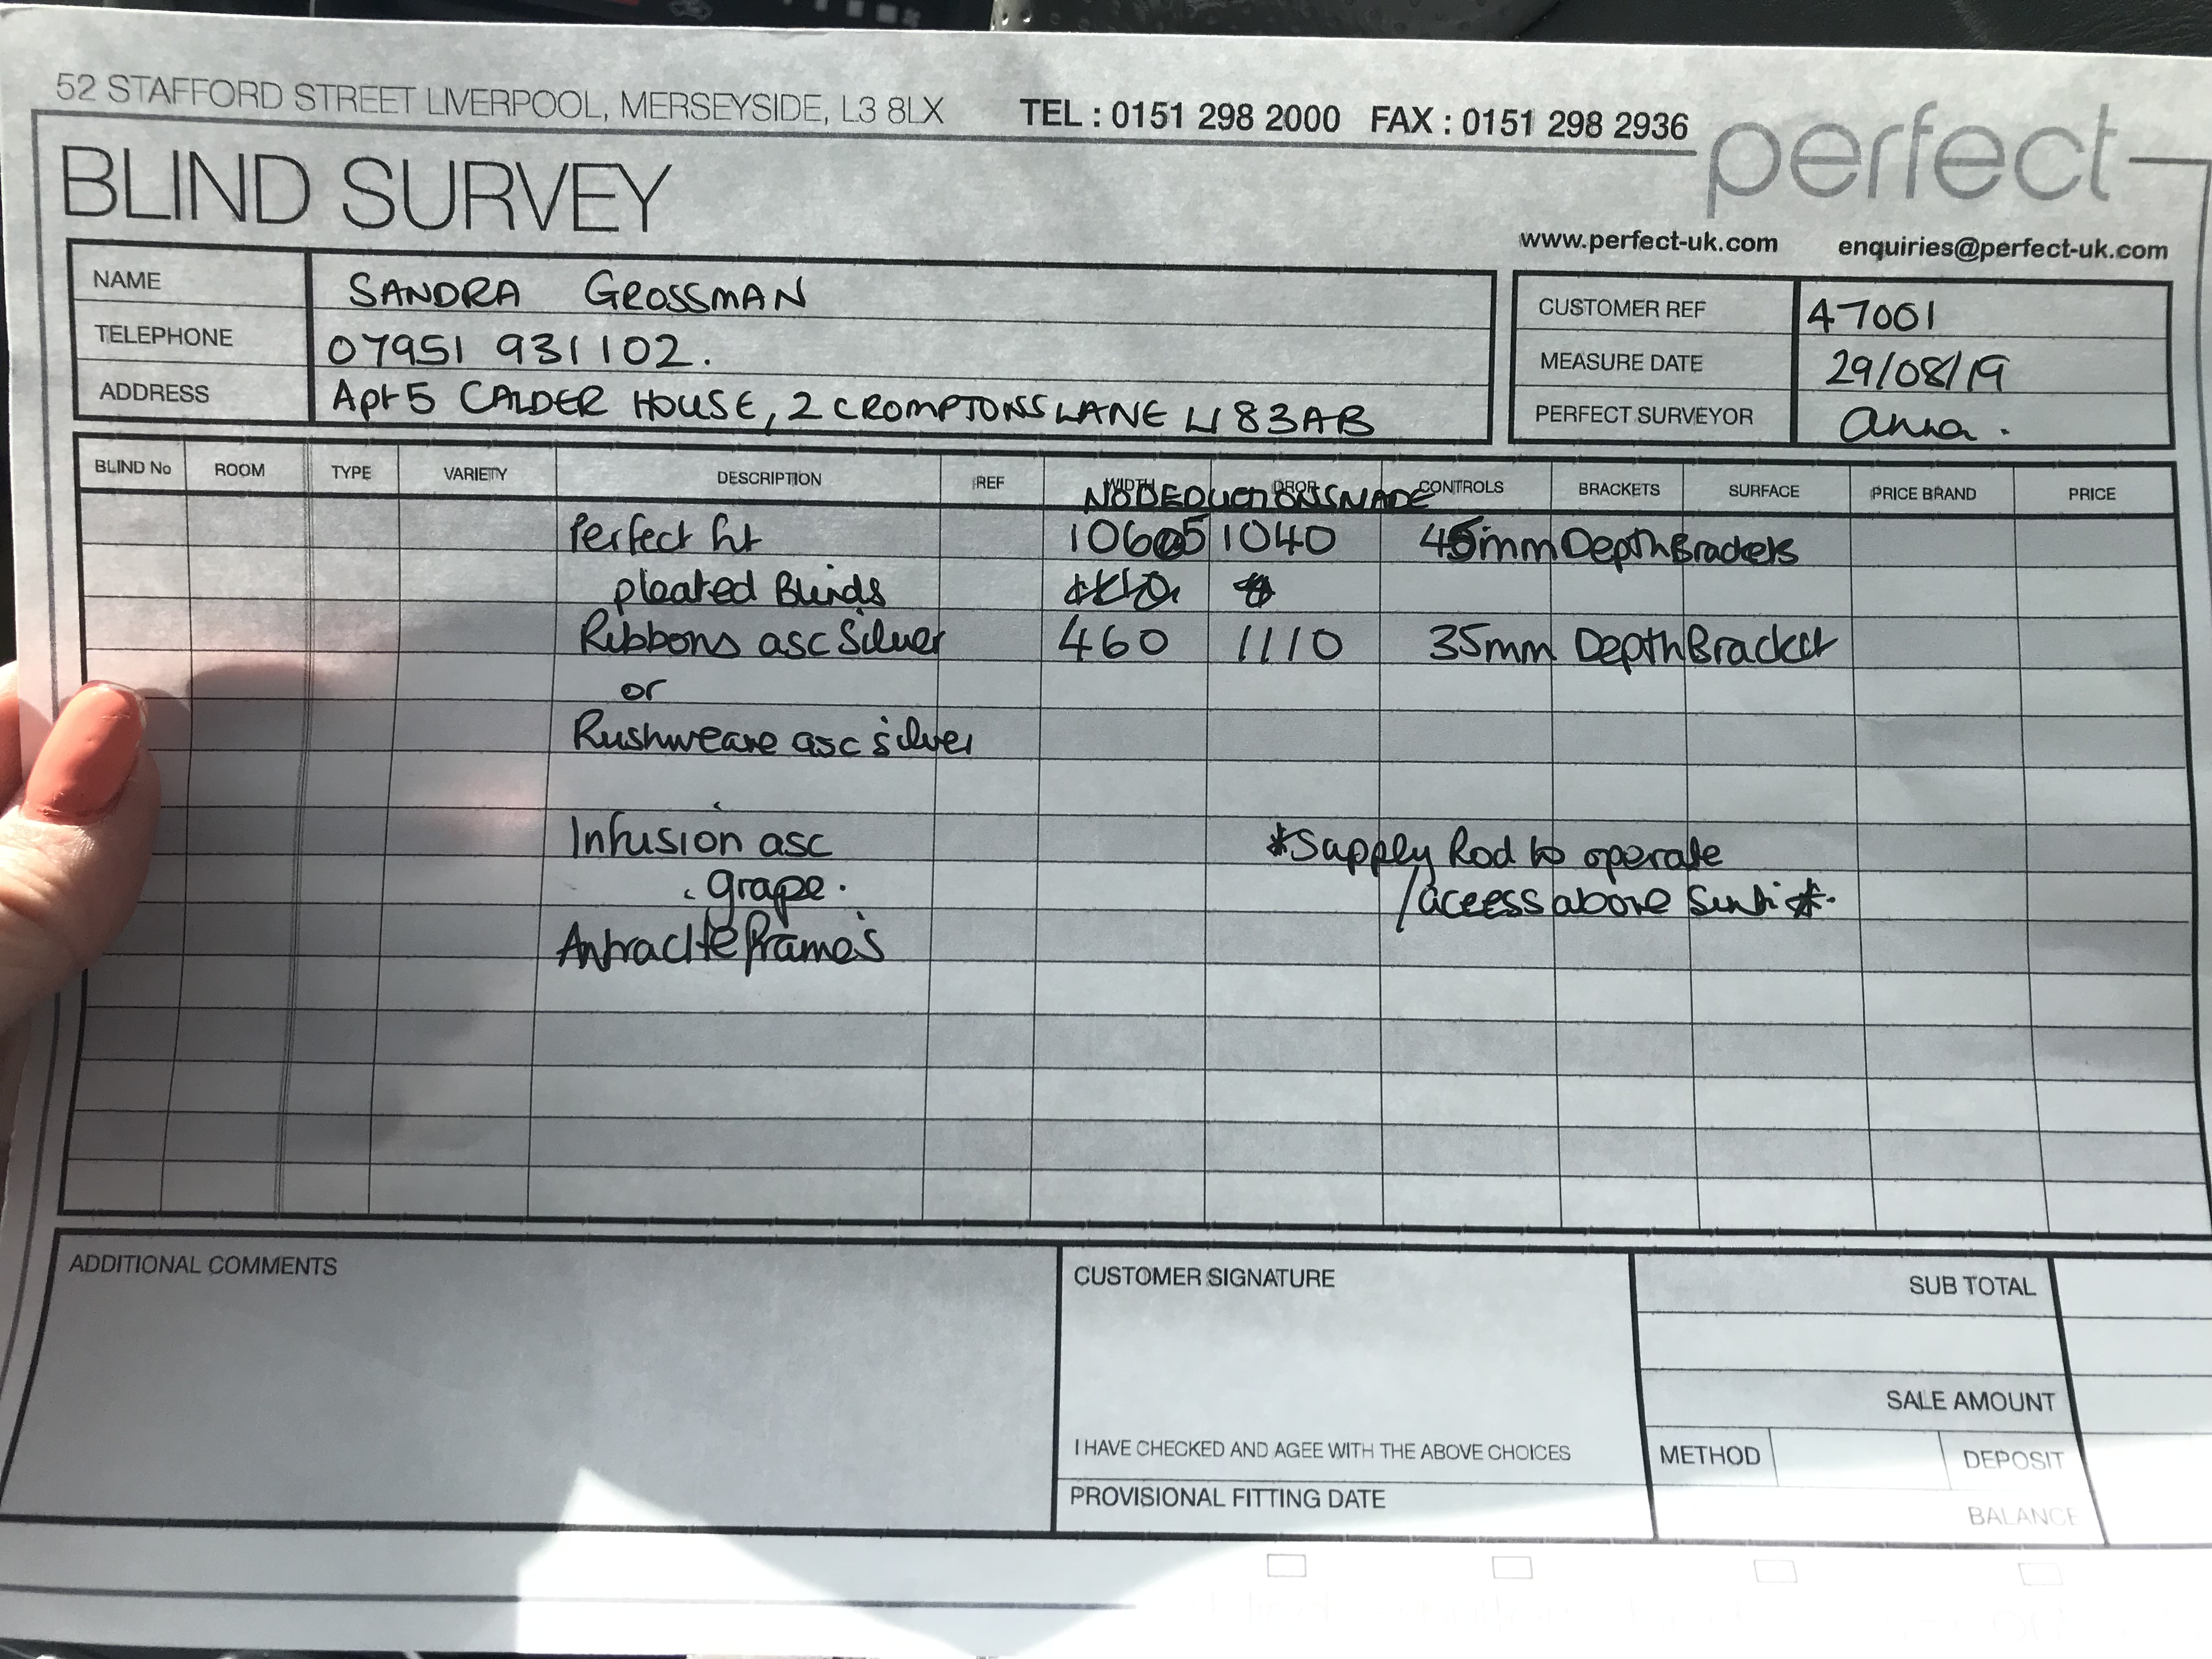 52 STAFFORD STREET LIVERPOOL, MERSEYSIDE, L3 8LX TEL : 0151 298 2000 FAX : 0151 298 2936
perfect
BLIND SURVEY
www.perfect-uk.com enquiries@perfect-uk.com
NAME SANDRA GROSSMAN
TELEPHONE 07951 931102.
ADDRESS Apt 5 CALDER HOUSE, 2 CROMPTONS LANE L18 3AB
CUSTOMER REF 47001
MEASURE DATE 29/08/19
PERFECT SURVEYOR anna.
BLIND No ROOM TYPE VARIETY DESCRIPTION REF WIDTH DROP CONTROLS BRACKETS SURFACE PRICE BRAND PRICE
NO DEDUCTIONS MADE
Perfect fit 1040 45mm Depth Brackets
pleated Blinds
Ribbons asc Silver 460 1110 35mm Depth Bracket
or
Rushweave asc silver
Infusion asc *Supply Rod to operate
grape. /aceess above
Antracite frames
ADDITIONAL COMMENTS
CUSTOMER SIGNATURE
I HAVE CHECKED AND AGEE WITH THE ABOVE CHOICES
PROVISIONAL FITTING DATE
SUB TOTAL
SALE AMOUNT
METHOD DEPOSIT
BALANCE